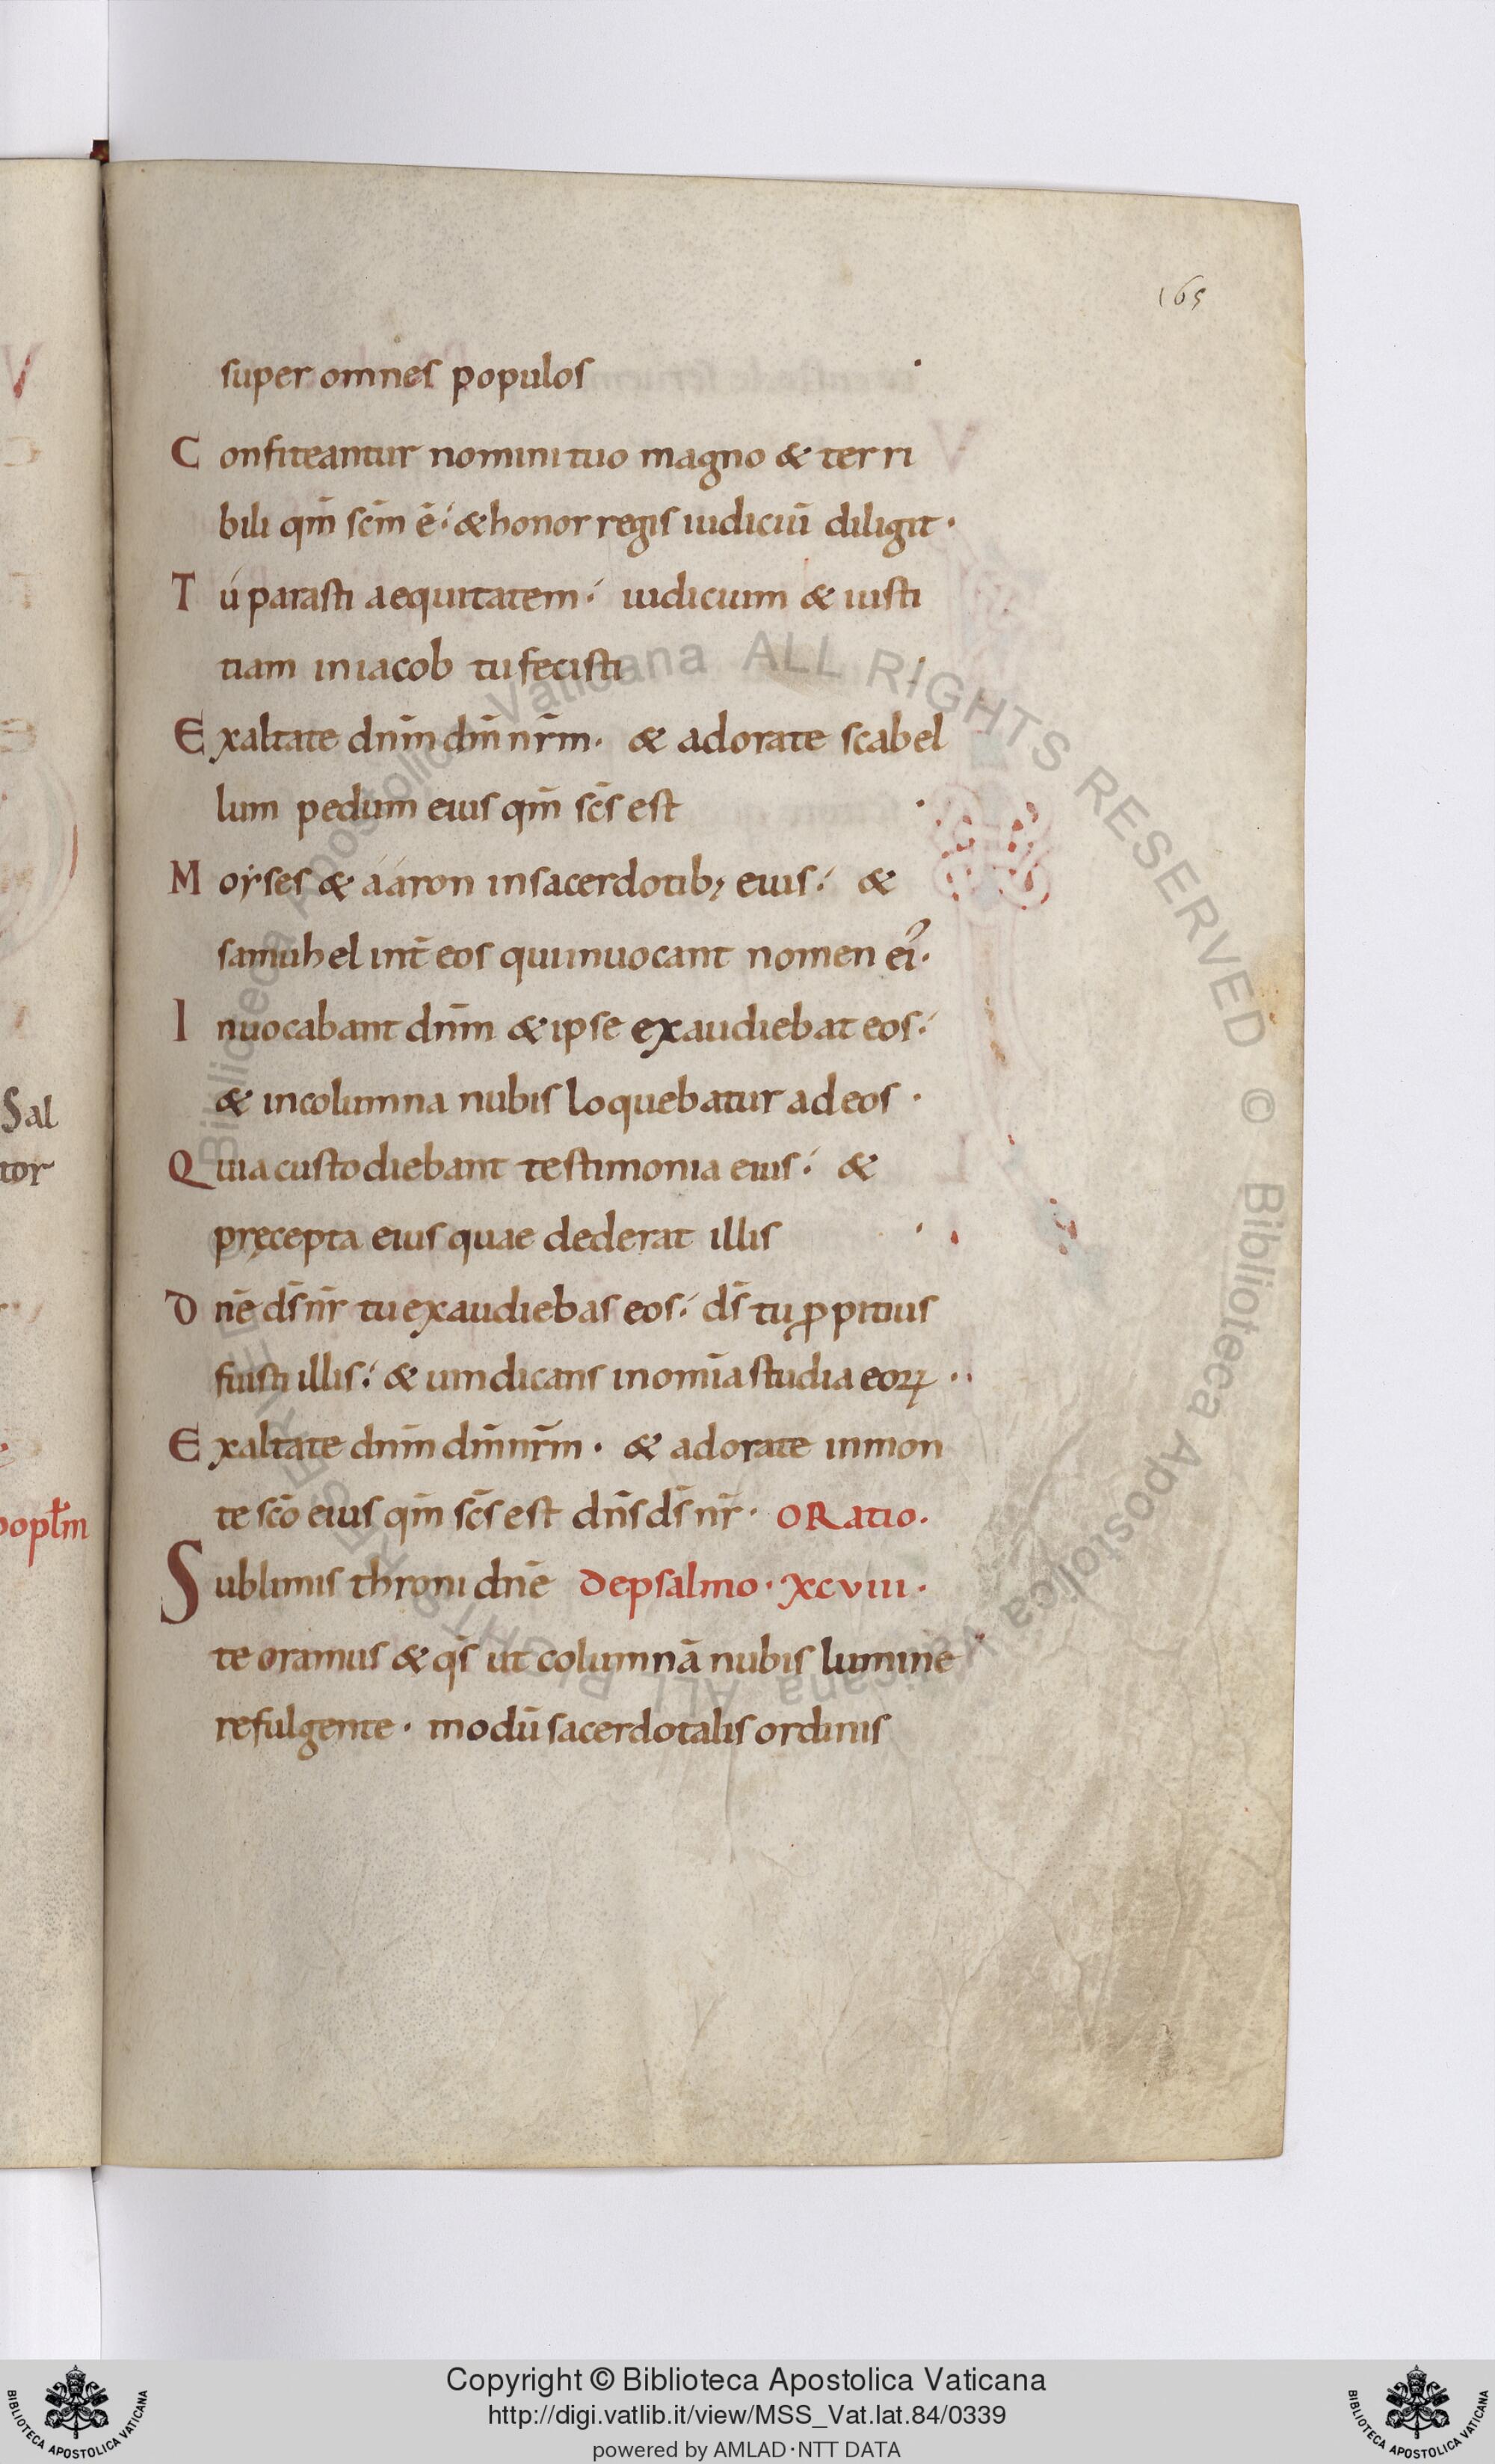 165
super omnes populos ·
Confiteantur nomini tuo magno & terri
bili qm̄ scm̄ ē·́ & honor regis iudiciū diligit ·
Tú parasti aequitatem·́ iudicium & iusti
tiam in iacob tu fecisti ·́
Exaltate dnm̄ dm̄ nrm̄· & adorate scabel
lum pedum eius qm̄ scs̄ est ·
Moyses & ááron in sacerdotib; eius·́ &
samuhel int̄ eos qui inuocant nomen ei᾽·
Inuocabant dnm̄ & ipse exaudiebat eos·́
& in columna nubis loquebatur ad eos ·
Quia custodiebant testimonia eius·́ &
pręcepta eius quae dederat illis ·
Dnē ds̄ nr̄ tu exaudiebas eos·́ ds̄ tu ꝓpitius
fuisti illis·́ & uindicans in omīa studia eoꝝ ··
Exaltate dnm̄ dm̄ nrm̄ · & adorate in mon
te scō eius qm̄ scs̄ est dns̄ ds̄ nr̄ · ORatio.
Sublimis throni dnē De psalmo · xcviii ·
te oramus & qs̄ ut columnā nubis lumine
refulgente · modū sacerdotalis ordinis
Sal
tor
poplm̄
Biblioteca Apostolica Vaticana ALL RIGHTS RESERVED © Biblioteca Apostolica Vaticana ALL RIGHTS RESERVED ©
Copyright © Biblioteca Apostolica Vaticana
http://digi.vatlib.it/view/MSS_Vat.lat.84/0339
powered by AMLAD·NTT DATA
BIBLIOTECA APOSTOLICA VATICANA
BIBLIOTECA APOSTOLICA VATICANA